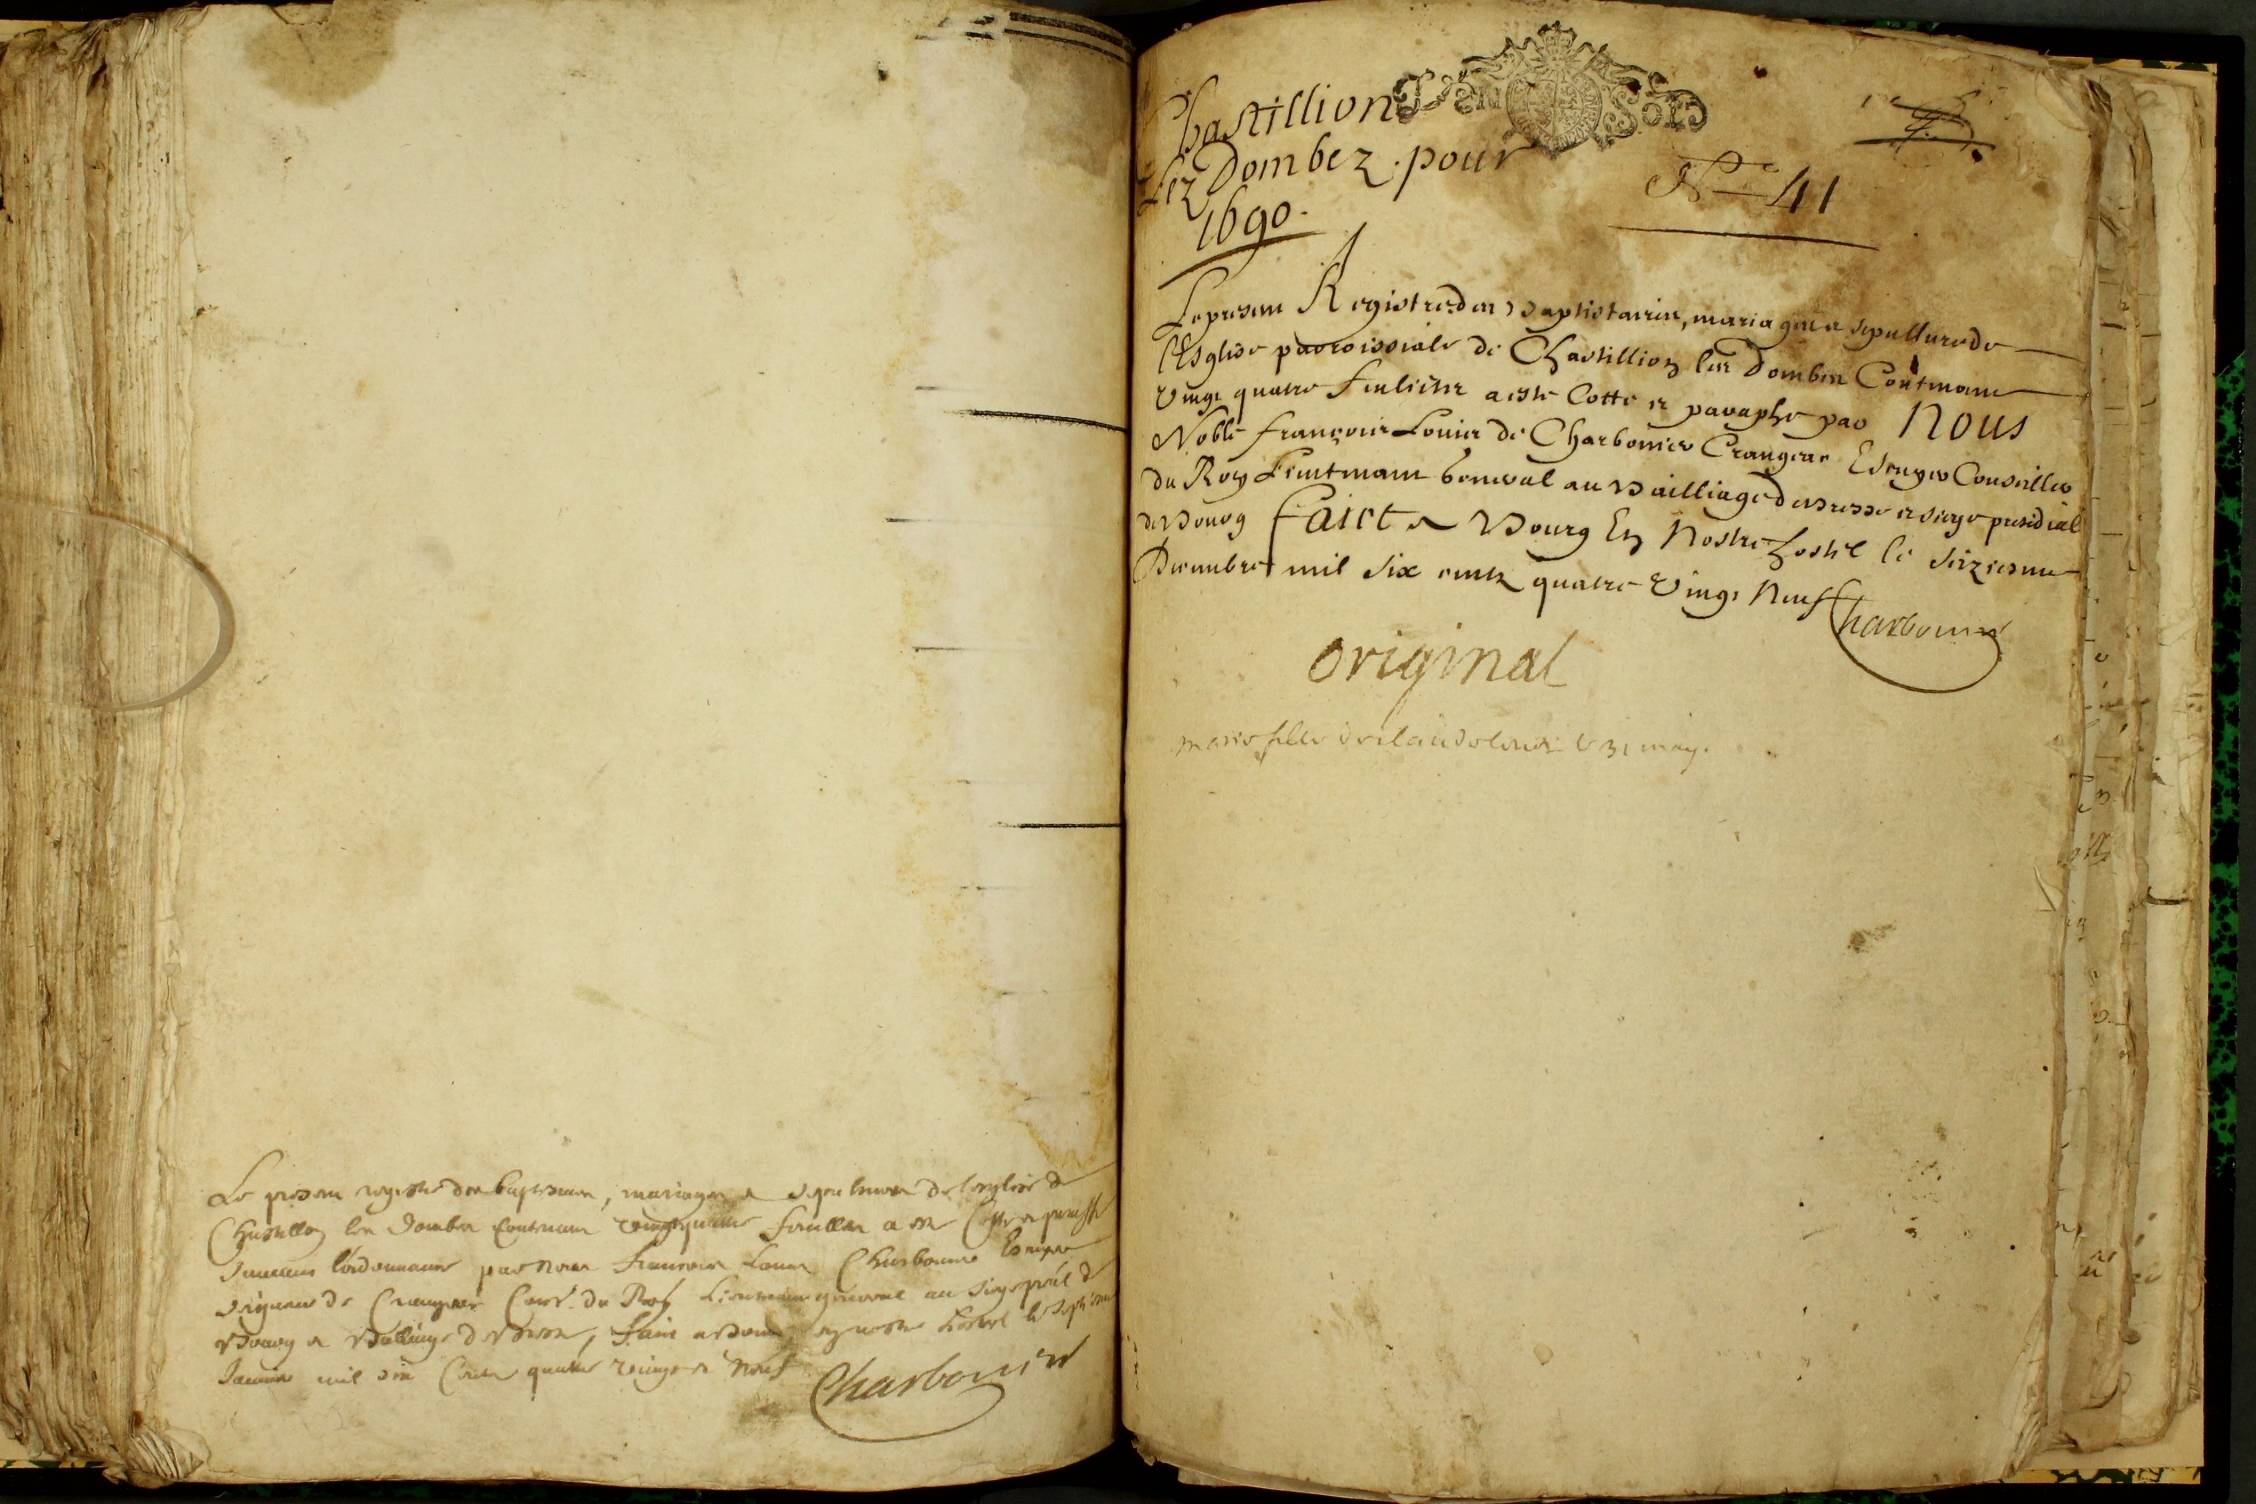 Le present registre des baptesmes, mariages et sepultures de l'esglise de
Chastillon les Dombes contenant vingt quatre feuilles a esté cotté et paraffé
suivant l'ordonnance par nous François Louis Charbonnier Escuyer
seigneur de Crangeac Conser. du Roy Lieutenant general au siege pnal de
Bourg et Balliage de Bresse, faict a Bourg en nostre hostel le septiesme
Janvier mil six cents quatre vingt et neuf Charbonier
Chastillion
Lez Dombez. pour
1690.
No 41
Le present Registre des Baptistaires, mariages et sepulture de
l'Esglise parroissiale de Chastillion les Dombes Contenant
vingt quatre feulietz a esté Cotté et paraphé par Nous
Noble françois Louis de Charbonier Crangeac Escuyer Conseiller
du Roy Lieutenant general au Bailliage de Bresse et siege presidial
de Bourg faict a Bourg En Nostre hostel le seiziesme
Decembre mil six centz quatre vingt Neuf Charbonier
original
marie fille de claude le 31 may.